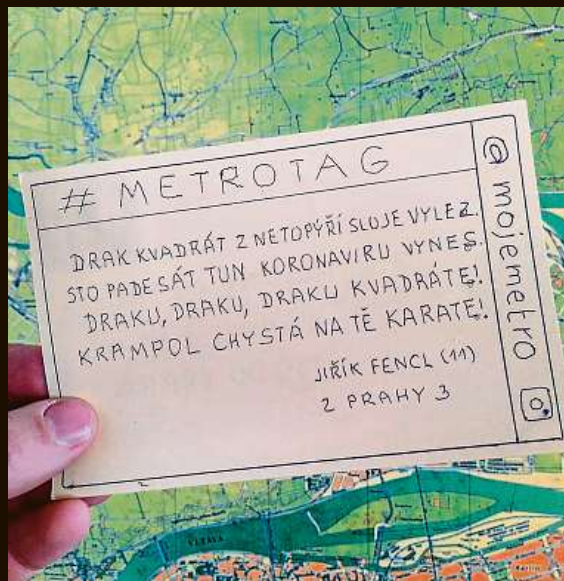 # METROTAG
@mojemetro
DRAK KVADRÁT Z NETOPÝŘÍ SLOJE VYLEZ.
STO PADESÁT TUN KORONAVIRU VYNES.
DRAKU, DRAKU, DRAKU KVADRÁTE!
KRAMPOL CHYSTÁ NA TĚ KARATE!
JIŘÍK FENCL (11)
Z PRAHY 3
VLTAVA